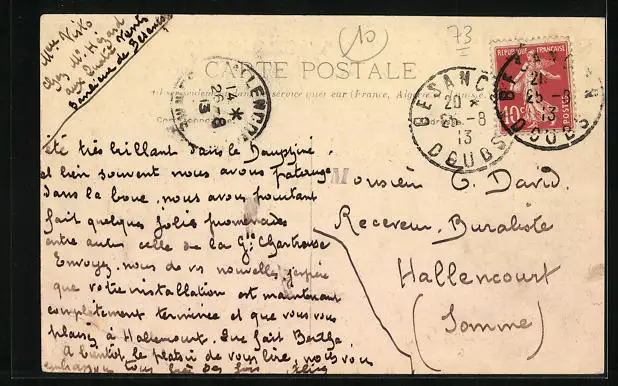 Mme Niko
chez Mr Hézard
aux Quatre Vents
Banlieue de Besançon
(10)
73
CARTE POSTALE
HALLENCOURT
14 *
26-8
13
BESANÇON
20 *
25-8
13
DOUBS
RÉPUBLIQUE FRANÇAISE
10c
BESANÇON
21 *
25-8
13
DOUBS
été très brillant dans le Dauphiné
et bien souvent nous avons patauge
dans la boue, nous avons pourtant
fait quelques jolies promenades
entre autres celle de la Gde Chartreuse
Envoyez nous de vos nouvelles j'espère
que votre installation est maintenant
complètement terminée et que vous vous
plaisez à Hallencourt. Que fait Berthe
à bientôt le plaisir de vous lire, nous vous
embrassons tous bien des fois
Monsieur O. David
Receveur Buraliste
Hallencourt
(Somme)